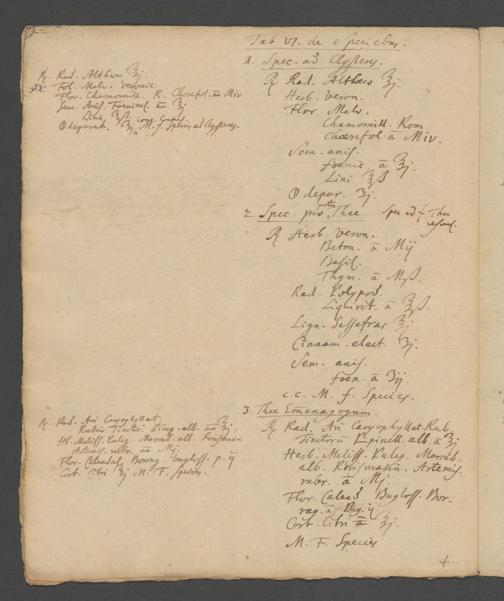 Tab VI. de Speciebus.
1. Spec. ad Clysteres.
℞ Rad. Althaeae ℥j.
Herb. veron.
Flor. Malv.
Chamomill. Rom
Chaerefol. a̅ Miv.
Sem. anis.
foenic. a̅ ℥j.
Lini ℥ß
depur. ℥j.
2. Spec. pro Thee.
℞ Herb. veron.
Beton. a̅ Mij
Basil.
Thym. a̅ Mß.
Rad. Polypod.
Liquirit. a̅ ℥ß.
Lign. Sassafras ℥j
Cinnam. elect. ℥j.
Sem. anis.
foen. a̅ ℥ij.
c.c. M. f. Species.
3. Thee Emenagogum.
℞ Rad. Ari Caryophyllat. Rub.
Tinctor. Pimpinell. alb. a̅ ℥j
Herb. Meliss. Puleg. Marrub.
alb. Rorismarin. Artemis.
rubr. a̅ Mj
Flor. Calend. Bugloss. Bor-
rag. a̅ Pug. ij
Cort. Citri ℥j.
M. F. Species
4.
℞. Rad. Althaeae ℥j.
Fol. Malv. Veronic.
Flor. Chamomill. R. Cherefol. a̅ Miv
Sem. Anis. Foenicul. a̅ ℥j
Lini ℥ß
depurat. ℥j M. f. Species ad Clysteres.
℞. Rad. Ari Caryophyllat.
Rubiae Tinctor. Pimp. alb. a̅ ℥j.
Hb. Meliss. Puleg. Marrub. alb. Rorismarin
Artemis. rubr. a̅ Mj
Flor. Calendul. Borrag. Bugloss. p. ij
Cort. Citri ℥j M. F. Species.